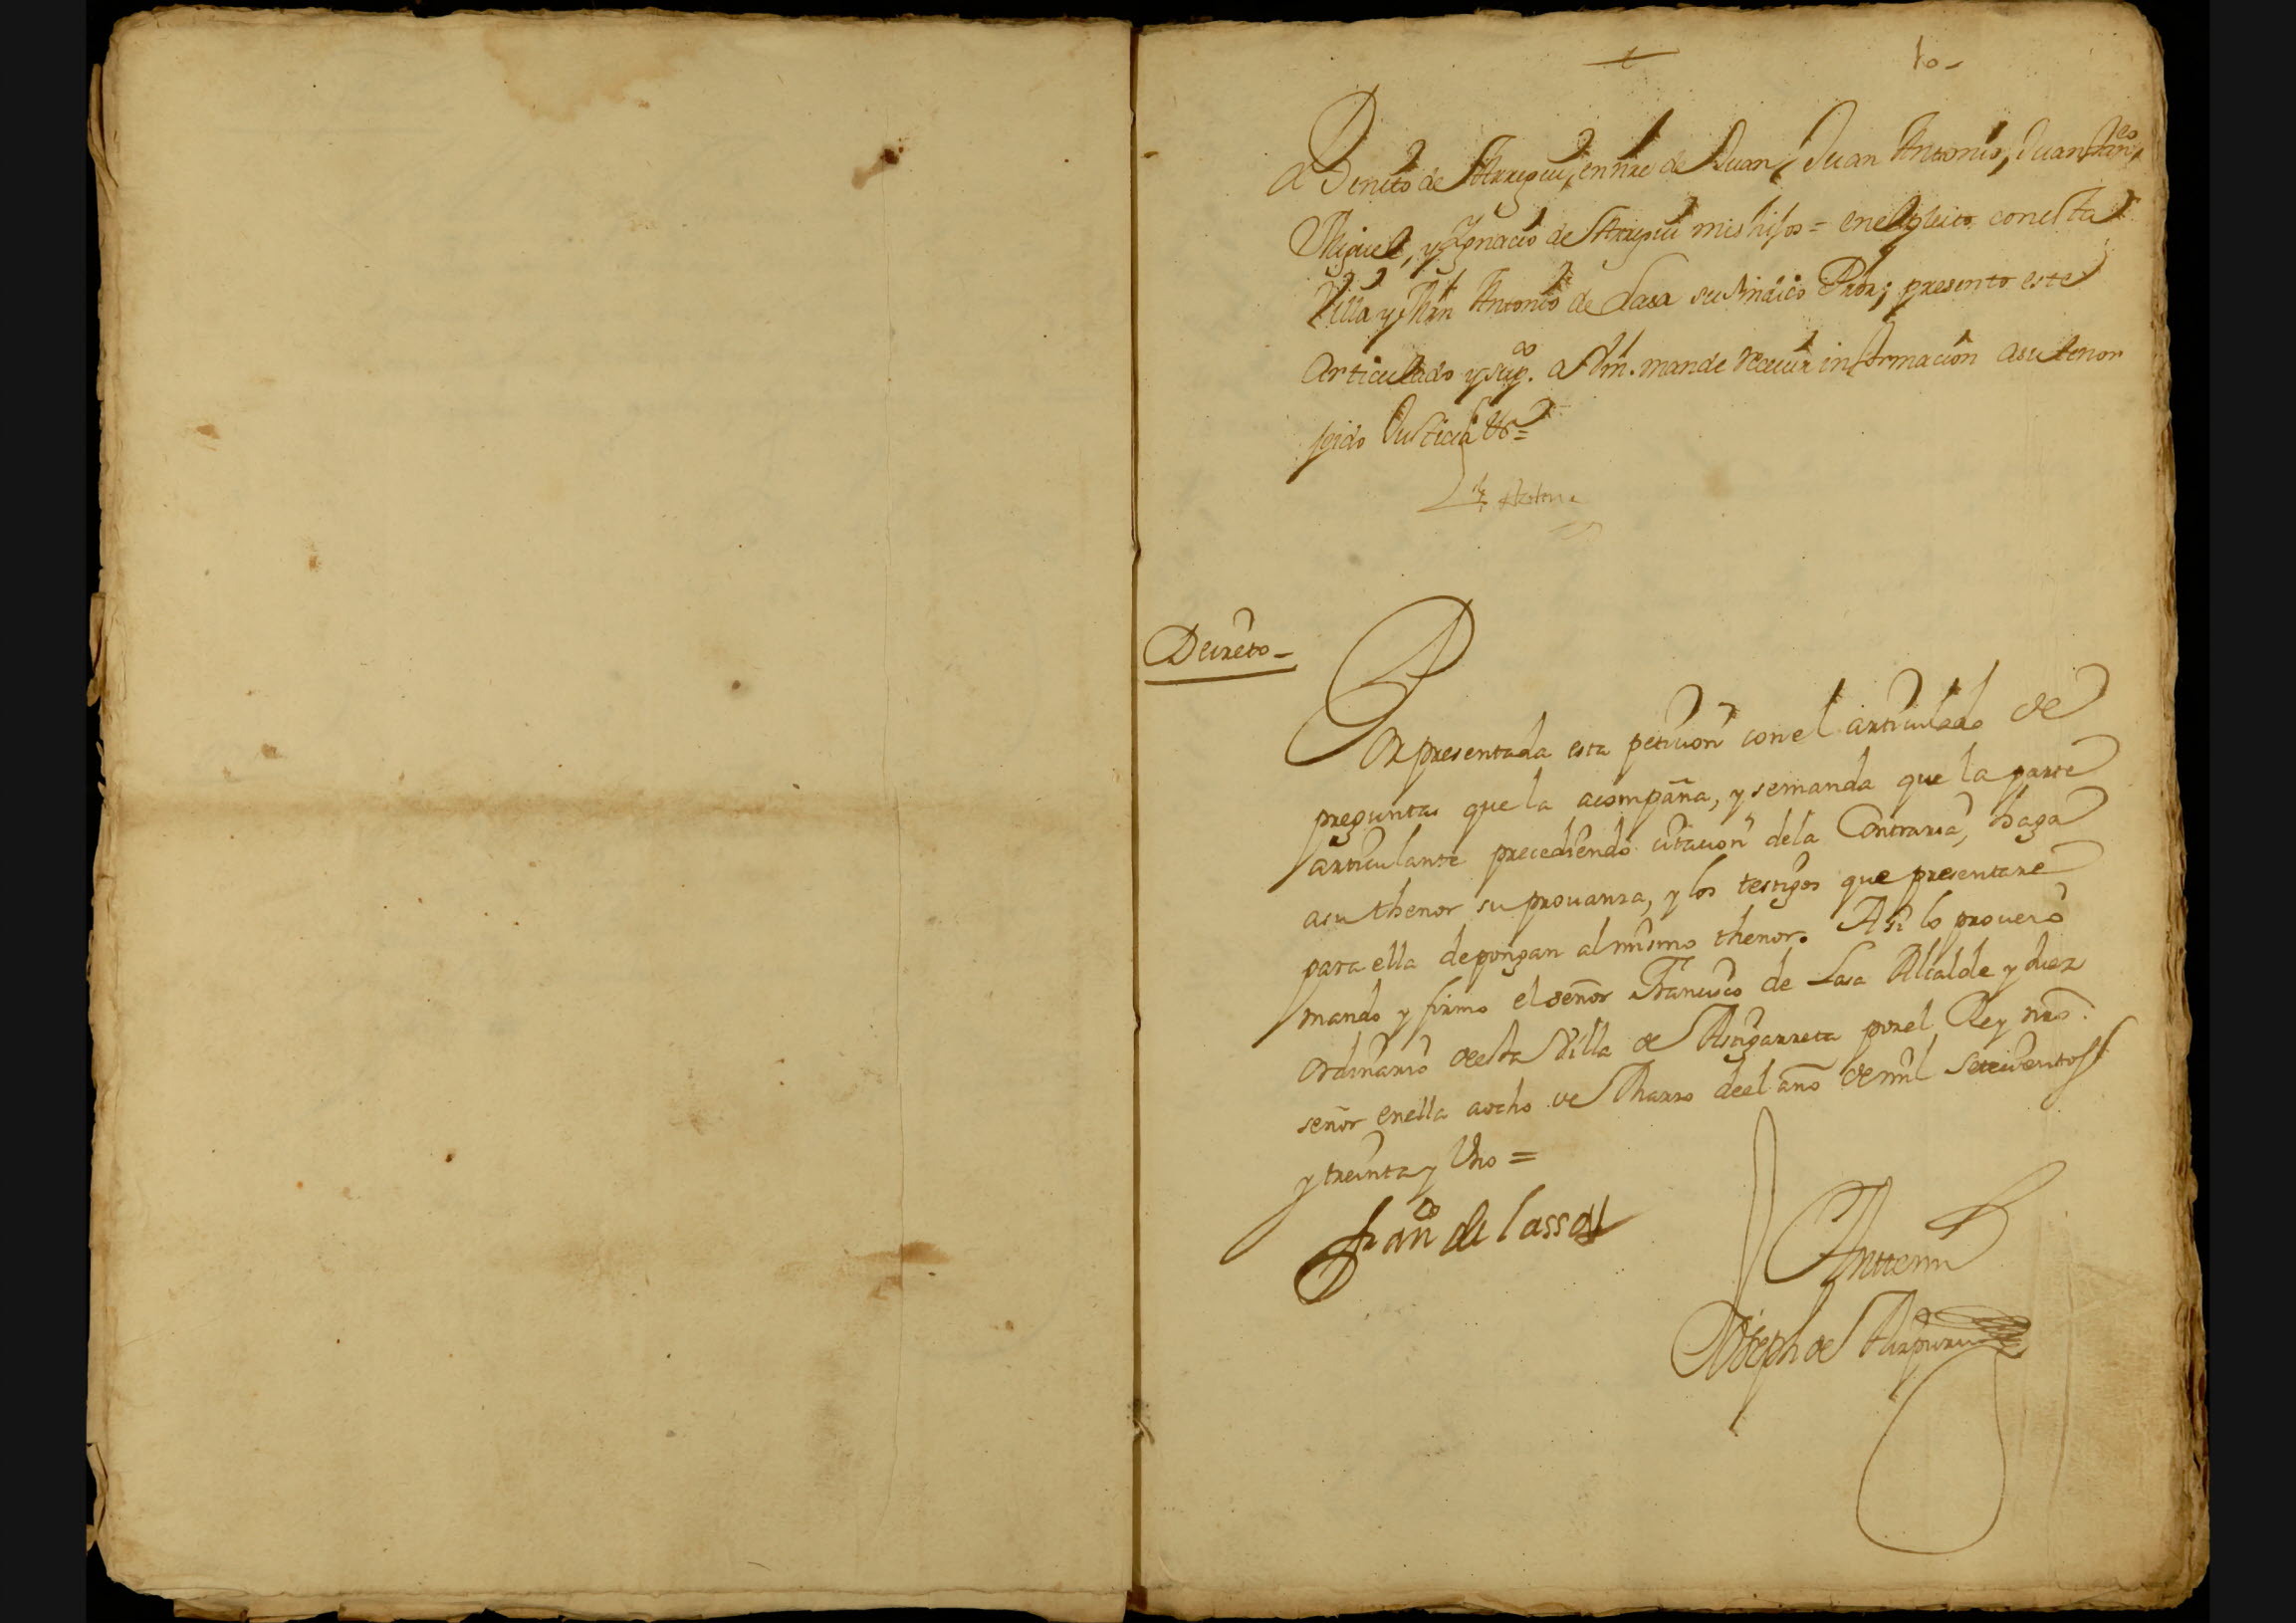 10-
Benito de Arregui, en nre de Juan, Juan Antonio, Juan Franco,
Miguel, y Ygnacio de Arregui mis hijos = en el pleito con esta
Villa y Mrn Antonio de Lasa su sindico Pror; presento este
Articulado y supco. a Vm. mande recivir informacion a su tenor
pido Justicia &a =
Decreto -
Por presentada esta peticion con el articulado de
preguntas que la acompaña, y se manda que la parte
articulante precediendo citacion de la Contraria, haga
a su thenor su provanza, y los testigos que presentare
para ella depongan al mismo thenor. Asi lo proveio
mando y firmo el señor Francisco de Lasa Alcalde y Juez
ordinario de esta Villa de Astigarreta por el Rey nro.
señor en ella a ocho de Marzo de el año de mil setecientos
y treinta y Uno =
Franco de lassa
Ante mi
Joseph de Aizpuru